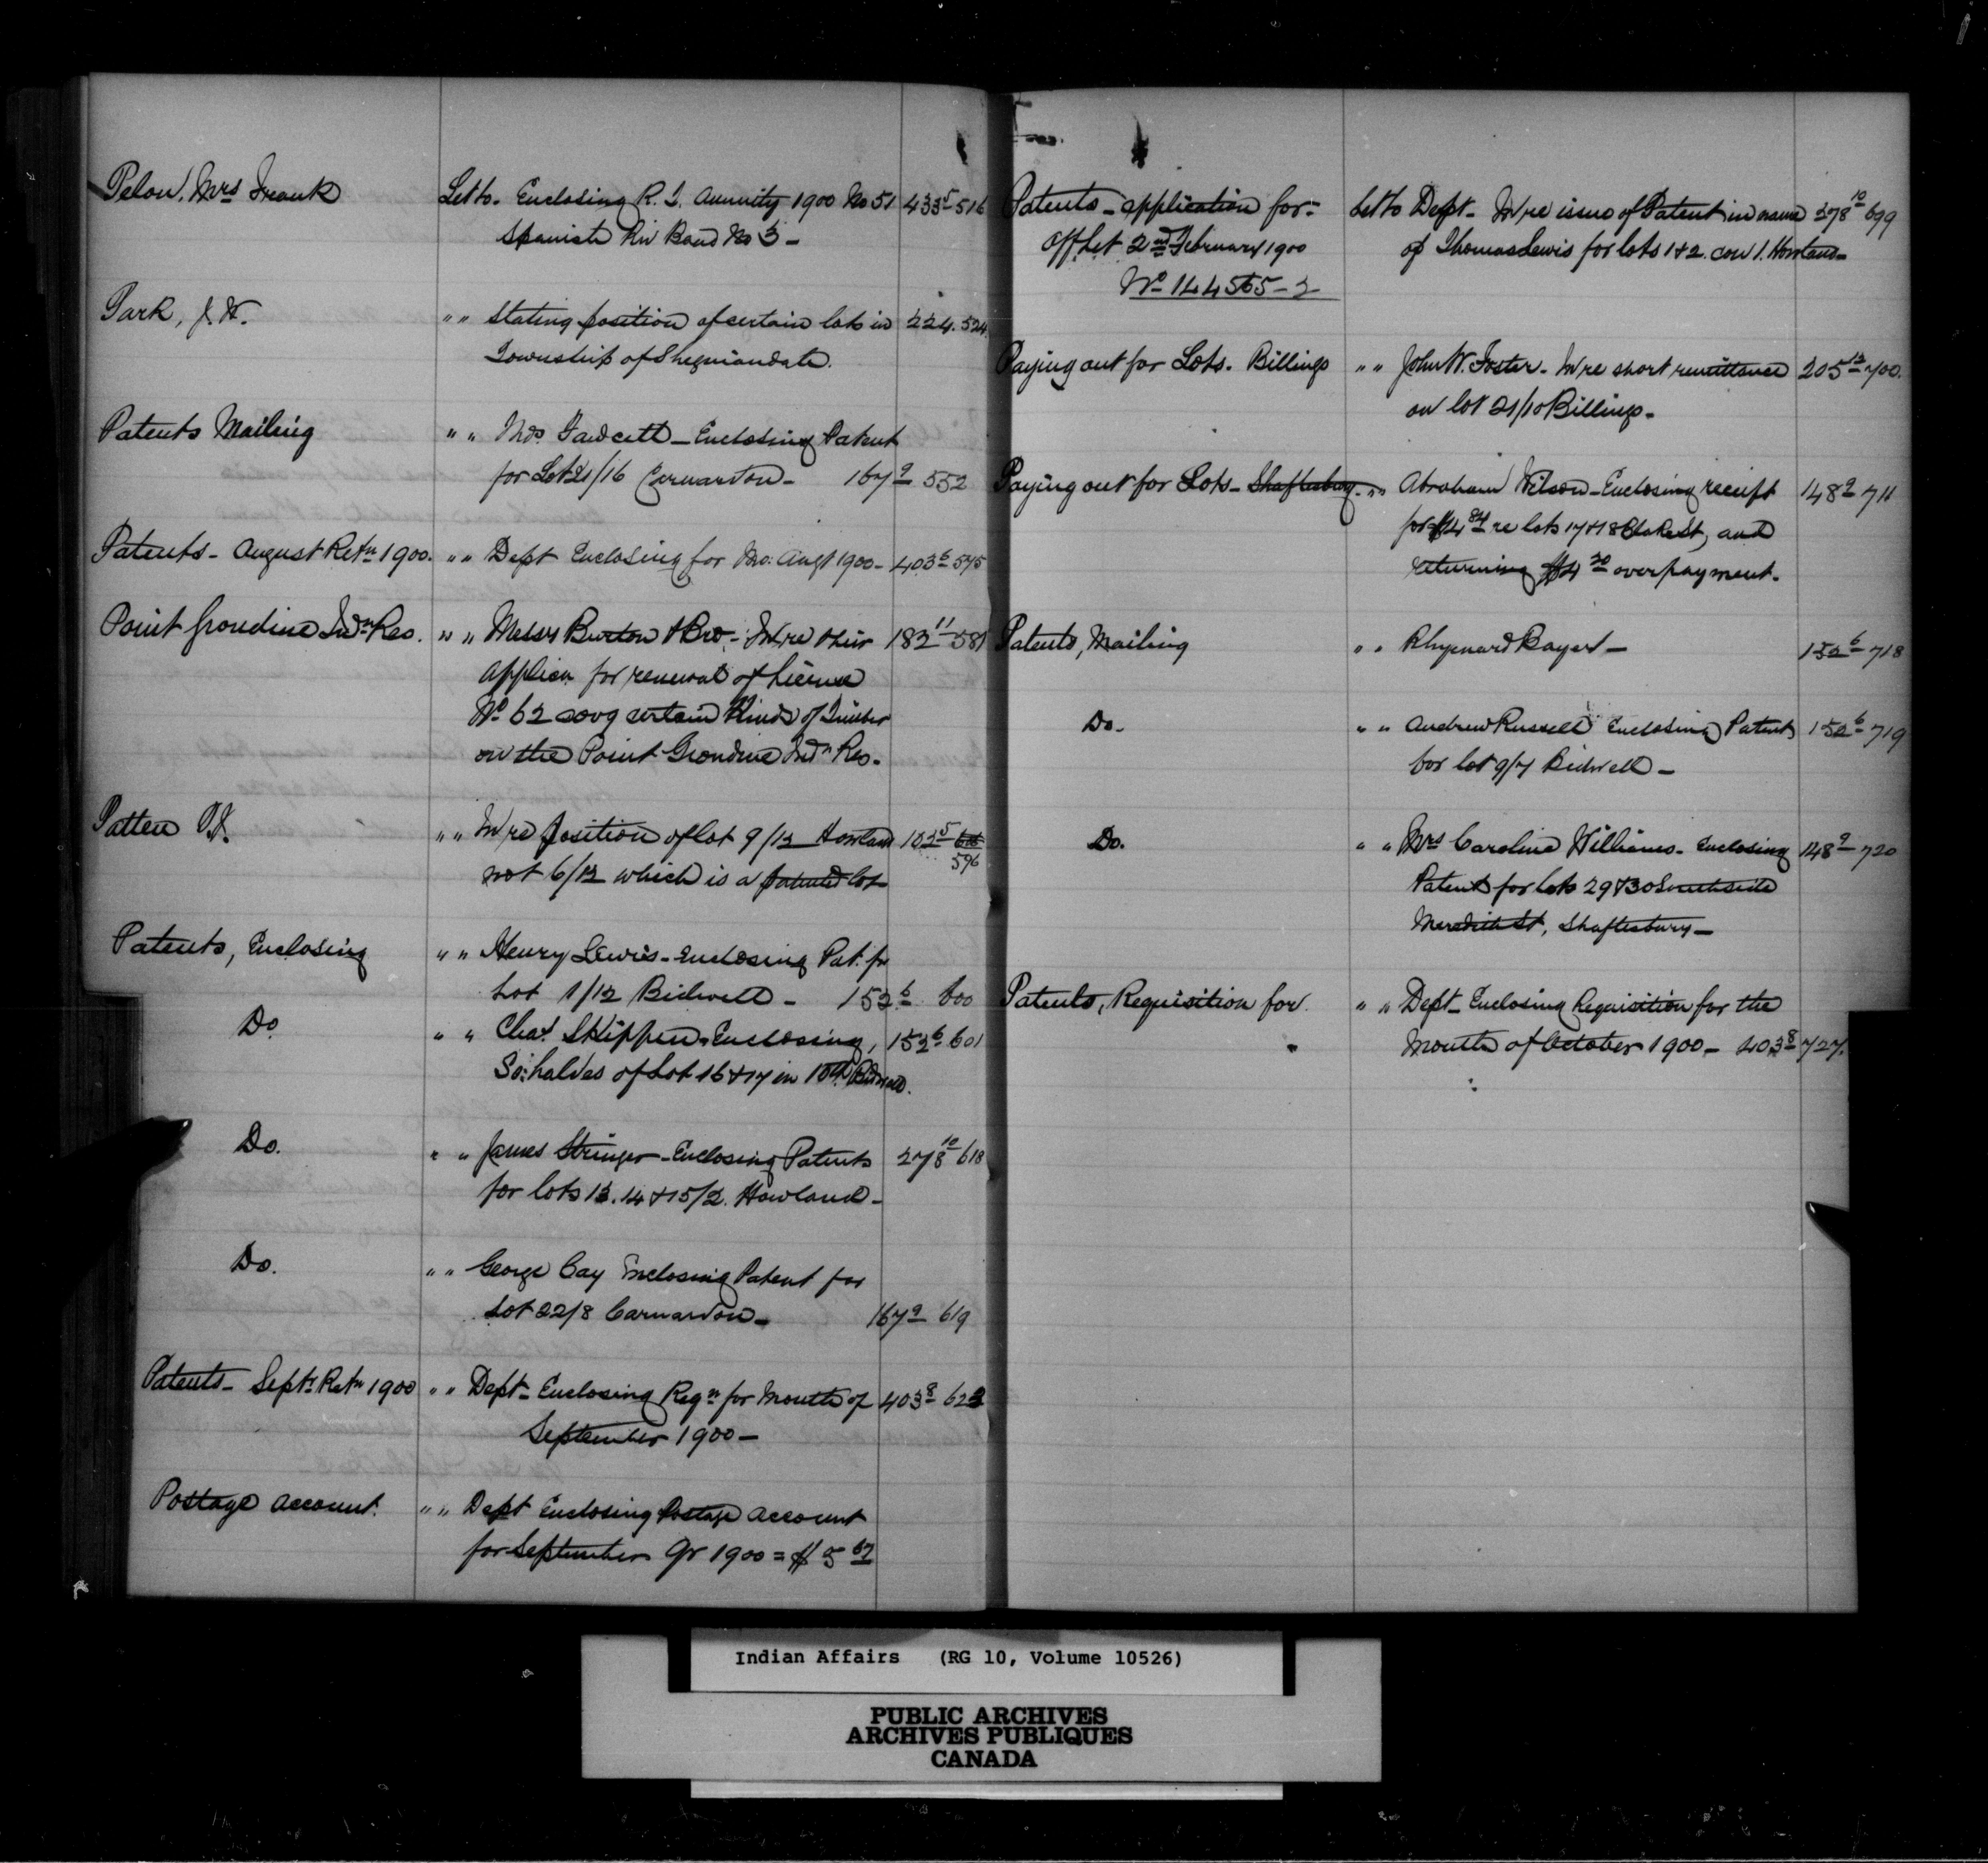 Pelow, Mrs Frank Let to. Enclosing R. I. Annuity 1900 No 51 433 5 516
Spanish Riv Band No 3 -
Park, J. W. " " Stating position of certain lots in 224. 524
Township of Sheguiandah.
Patents Mailing " " Thos. Fawcett - Enclosing Patent
for Lot 21/16 Carnarvon - 167 9 552
Patents - August Retn 1900. " " Dept Enclosing for Mo. Augt 1900 - 403 6 575
Point Grondine Indn Res. " " Messrs Burton & Bro - In re their 182 11 581
applicn for renewal of License
No 62 covg certain Kinds of Timber
on the Point Grondine Indn Res.
Patten " " In re position of lot 9/12 Howland 102 5
596
not 6/12 which is a patented lot
Patents, Enclosing " " Henry Lewis - enclosing Pat. for
Lot 1/12 Bidwell - 152 6 600
Do " " Chas. Skippen - Enclosing, 152 6 601
So: halves of Lot 16 & 17 in 10th Bidwell.
Do. " " James Stringer - Enclosing Patents 278 10 618
for lots 13. 14 & 15/2. Howland -
Do. " " George Cay Enclosing Patent for
Lot 22/8 Carnarvon - 167 9 619
Patents - Septr Retn 1900 " " Dept - Enclosing Reqn for Month of 403 8 623
September 1900 -
Postage Account. " " Dept Enclosing Postage Account
for September Qr 1900 = $ 5 67
Patents - application for - Let to Dept - In re issue of Patent in name 278 10 699
Off. Let 2nd February 1900 of Thomas Lewis for lots 1 & 2. con 1. Howland -
No 144565-2
Paying out for Lots. Billings " " John W. Foster - In re short remittance 205 12 700.
on lot 21/10 Billings -
Paying out for Lots - Shaftesbury - " " Abraham Wilson - Enclosing receipt 148 9 711
for $14 84 re lots 17 & 18 Blake St, and
returning $4 20 overpayment.
Patents, Mailing " " 152 6 718
Do. " " Andrew Russell Enclosing Patent 152 6 719
for lot 9/7 Bidwell -
Do. " " Mrs Caroline Williams - Enclosing 148 9 720
Patents for lots 29 & 30 South side
Meredith St, Shaftesbury -
Patents, Requisition for. " " Dept - Enclosing Requisition for the
Month of October 1900 - 403 8 727.
Indian Affairs (RG 10, Volume 10526)
PUBLIC ARCHIVES
ARCHIVES PUBLIQUES
CANADA